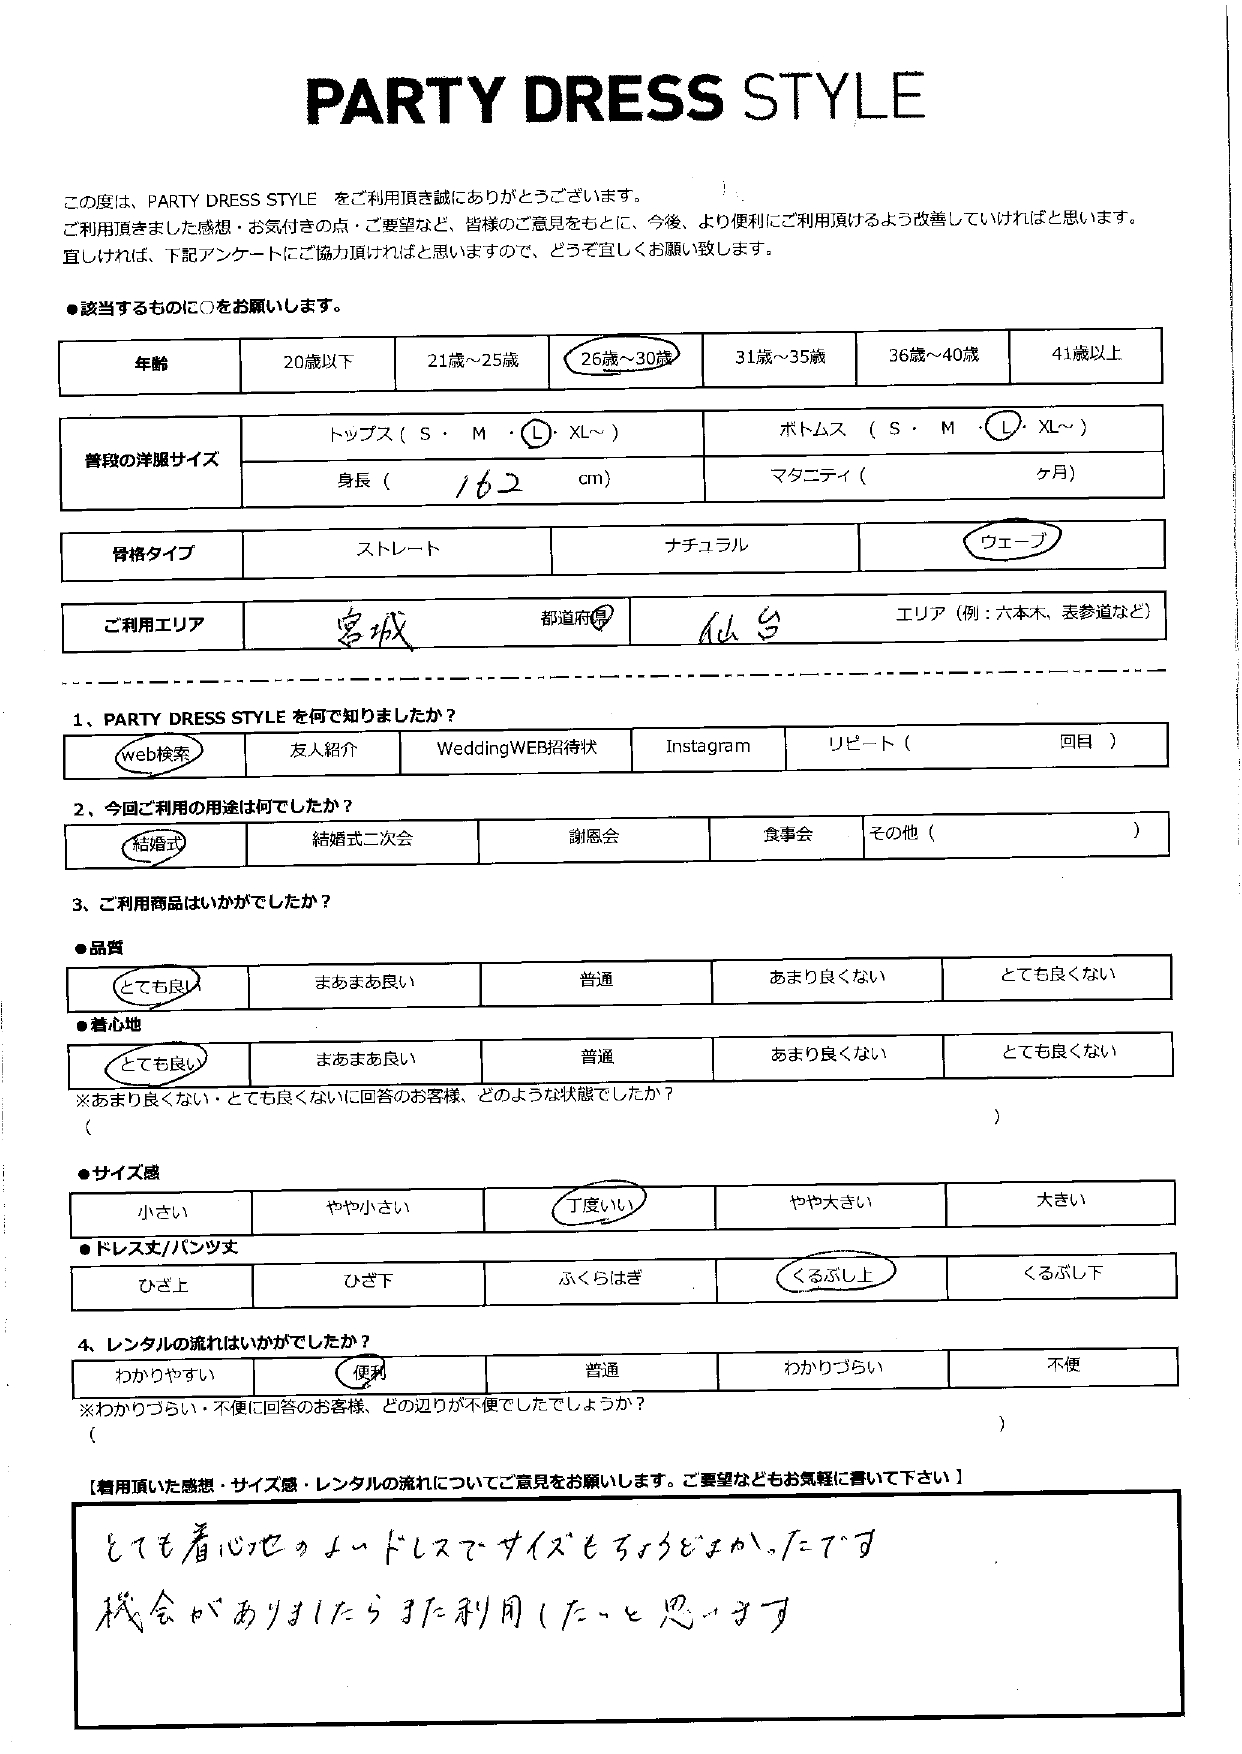 PARTY DRESS STYLE
この度は、PARTY DRESS STYLE をご利用頂き誠にありがとうございます。
ご利用頂きました感想・お気付きの点・ご要望など、皆様のご意見をもとに、今後、より便利にご利用頂けるよう改善していければと思います。
宜しければ、下記アンケートにご協力頂ければと思いますので、どうぞ宜しくお願い致します。
●該当するものに○をお願いします。
年齢 20歳以下 21歳～25歳 26歳～30歳 31歳～35歳 36歳～40歳 41歳以上
普段の洋服サイズ
トップス ( S ・ M ・ L ・ XL～ ) ボトムス ( S ・ M ・ L ・ XL～ )
身長 ( 162 cm) マタニティ ( ヶ月)
骨格タイプ ストレート ナチュラル ウェーブ
ご利用エリア 宮城 都道府県 仙台 エリア（例：六本木、表参道など）
1、PARTY DRESS STYLE を何で知りましたか？
web検索 友人紹介 WeddingWEB招待状 Instagram リピート ( 回目 )
2、今回ご利用の用途は何でしたか？
結婚式 結婚式二次会 謝恩会 食事会 その他 ( )
3、ご利用商品はいかがでしたか？
●品質
とても良い まあまあ良い 普通 あまり良くない とても良くない
●着心地
とても良い まあまあ良い 普通 あまり良くない とても良くない
※あまり良くない・とても良くないに回答のお客様、どのような状態でしたか？
( )
●サイズ感
小さい やや小さい 丁度いい やや大きい 大きい
●ドレス丈/パンツ丈
ひざ上 ひざ下 ふくらはぎ くるぶし上 くるぶし下
4、レンタルの流れはいかがでしたか？
わかりやすい 便利 普通 わかりづらい 不便
※わかりづらい・不便に回答のお客様、どの辺りが不便でしたでしょうか？
( )
【着用頂いた感想・サイズ感・レンタルの流れについてご意見をお願いします。ご要望などもお気軽に書いて下さい】
とても着心地のよいドレスでサイズもちょうどよかったです
機会がありましたらまた利用したいと思います